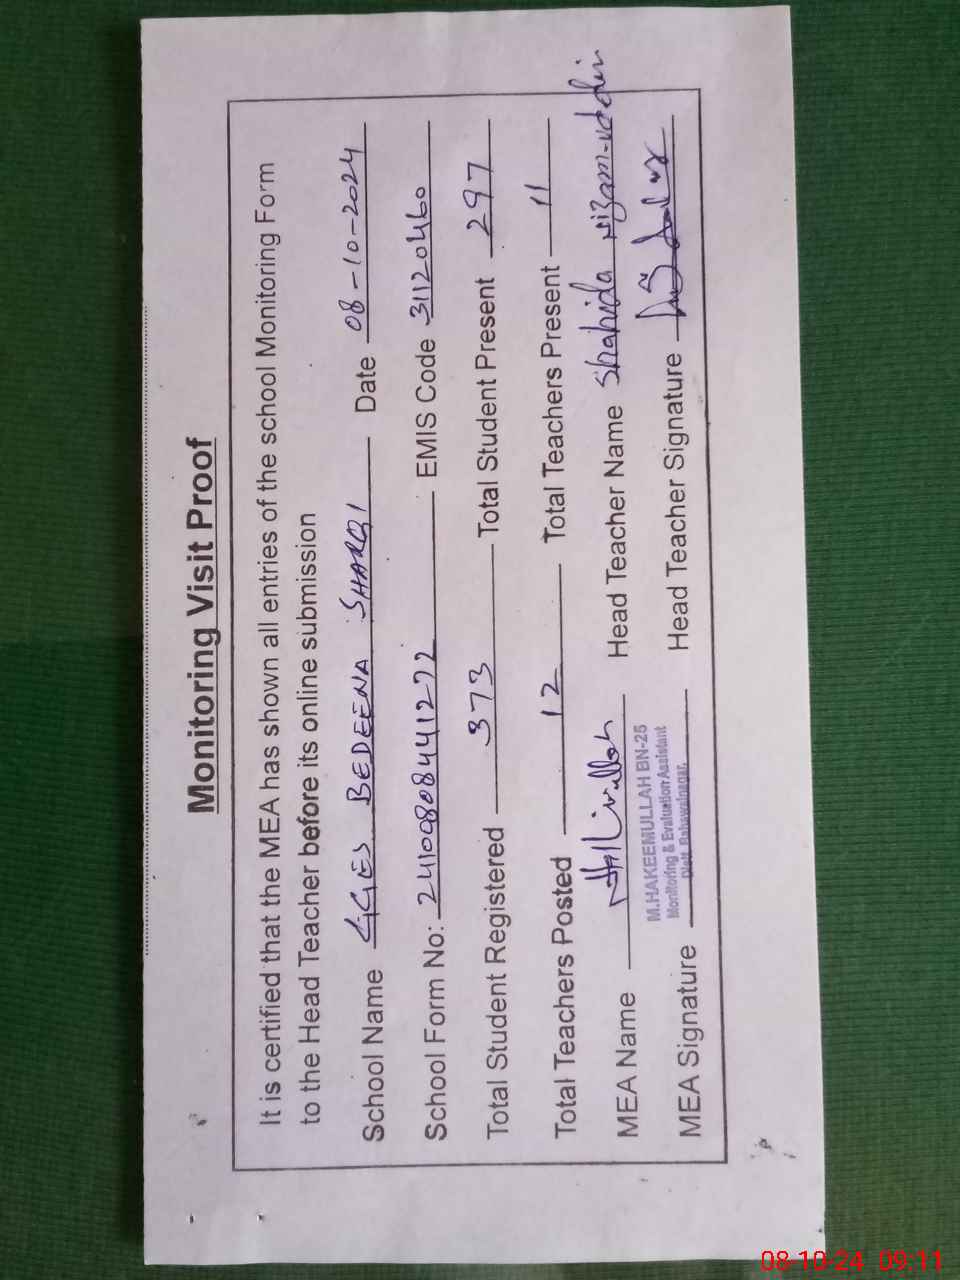 Monitoring Visit Proof
It is certified that the MEA has shown all entries of the school Monitoring Form
to the Head Teacher before its online submission
School Name GGES BEDEENA SHARQI Date 08-10-2024
School Form No: 24100808441272 EMIS Code 31120460
Total Student Registered 373 Total Student Present 297
Total Teachers Posted 12 Total Teachers Present 11
MEA Name Head Teacher Name Shahida Nizam-uddin
M.HAKEEMULLAH BN-25
Monitoring & Evaluation Assistant
Distt. Bahawalnagar.
MEA Signature Head Teacher Signature
08-10-24 09:11